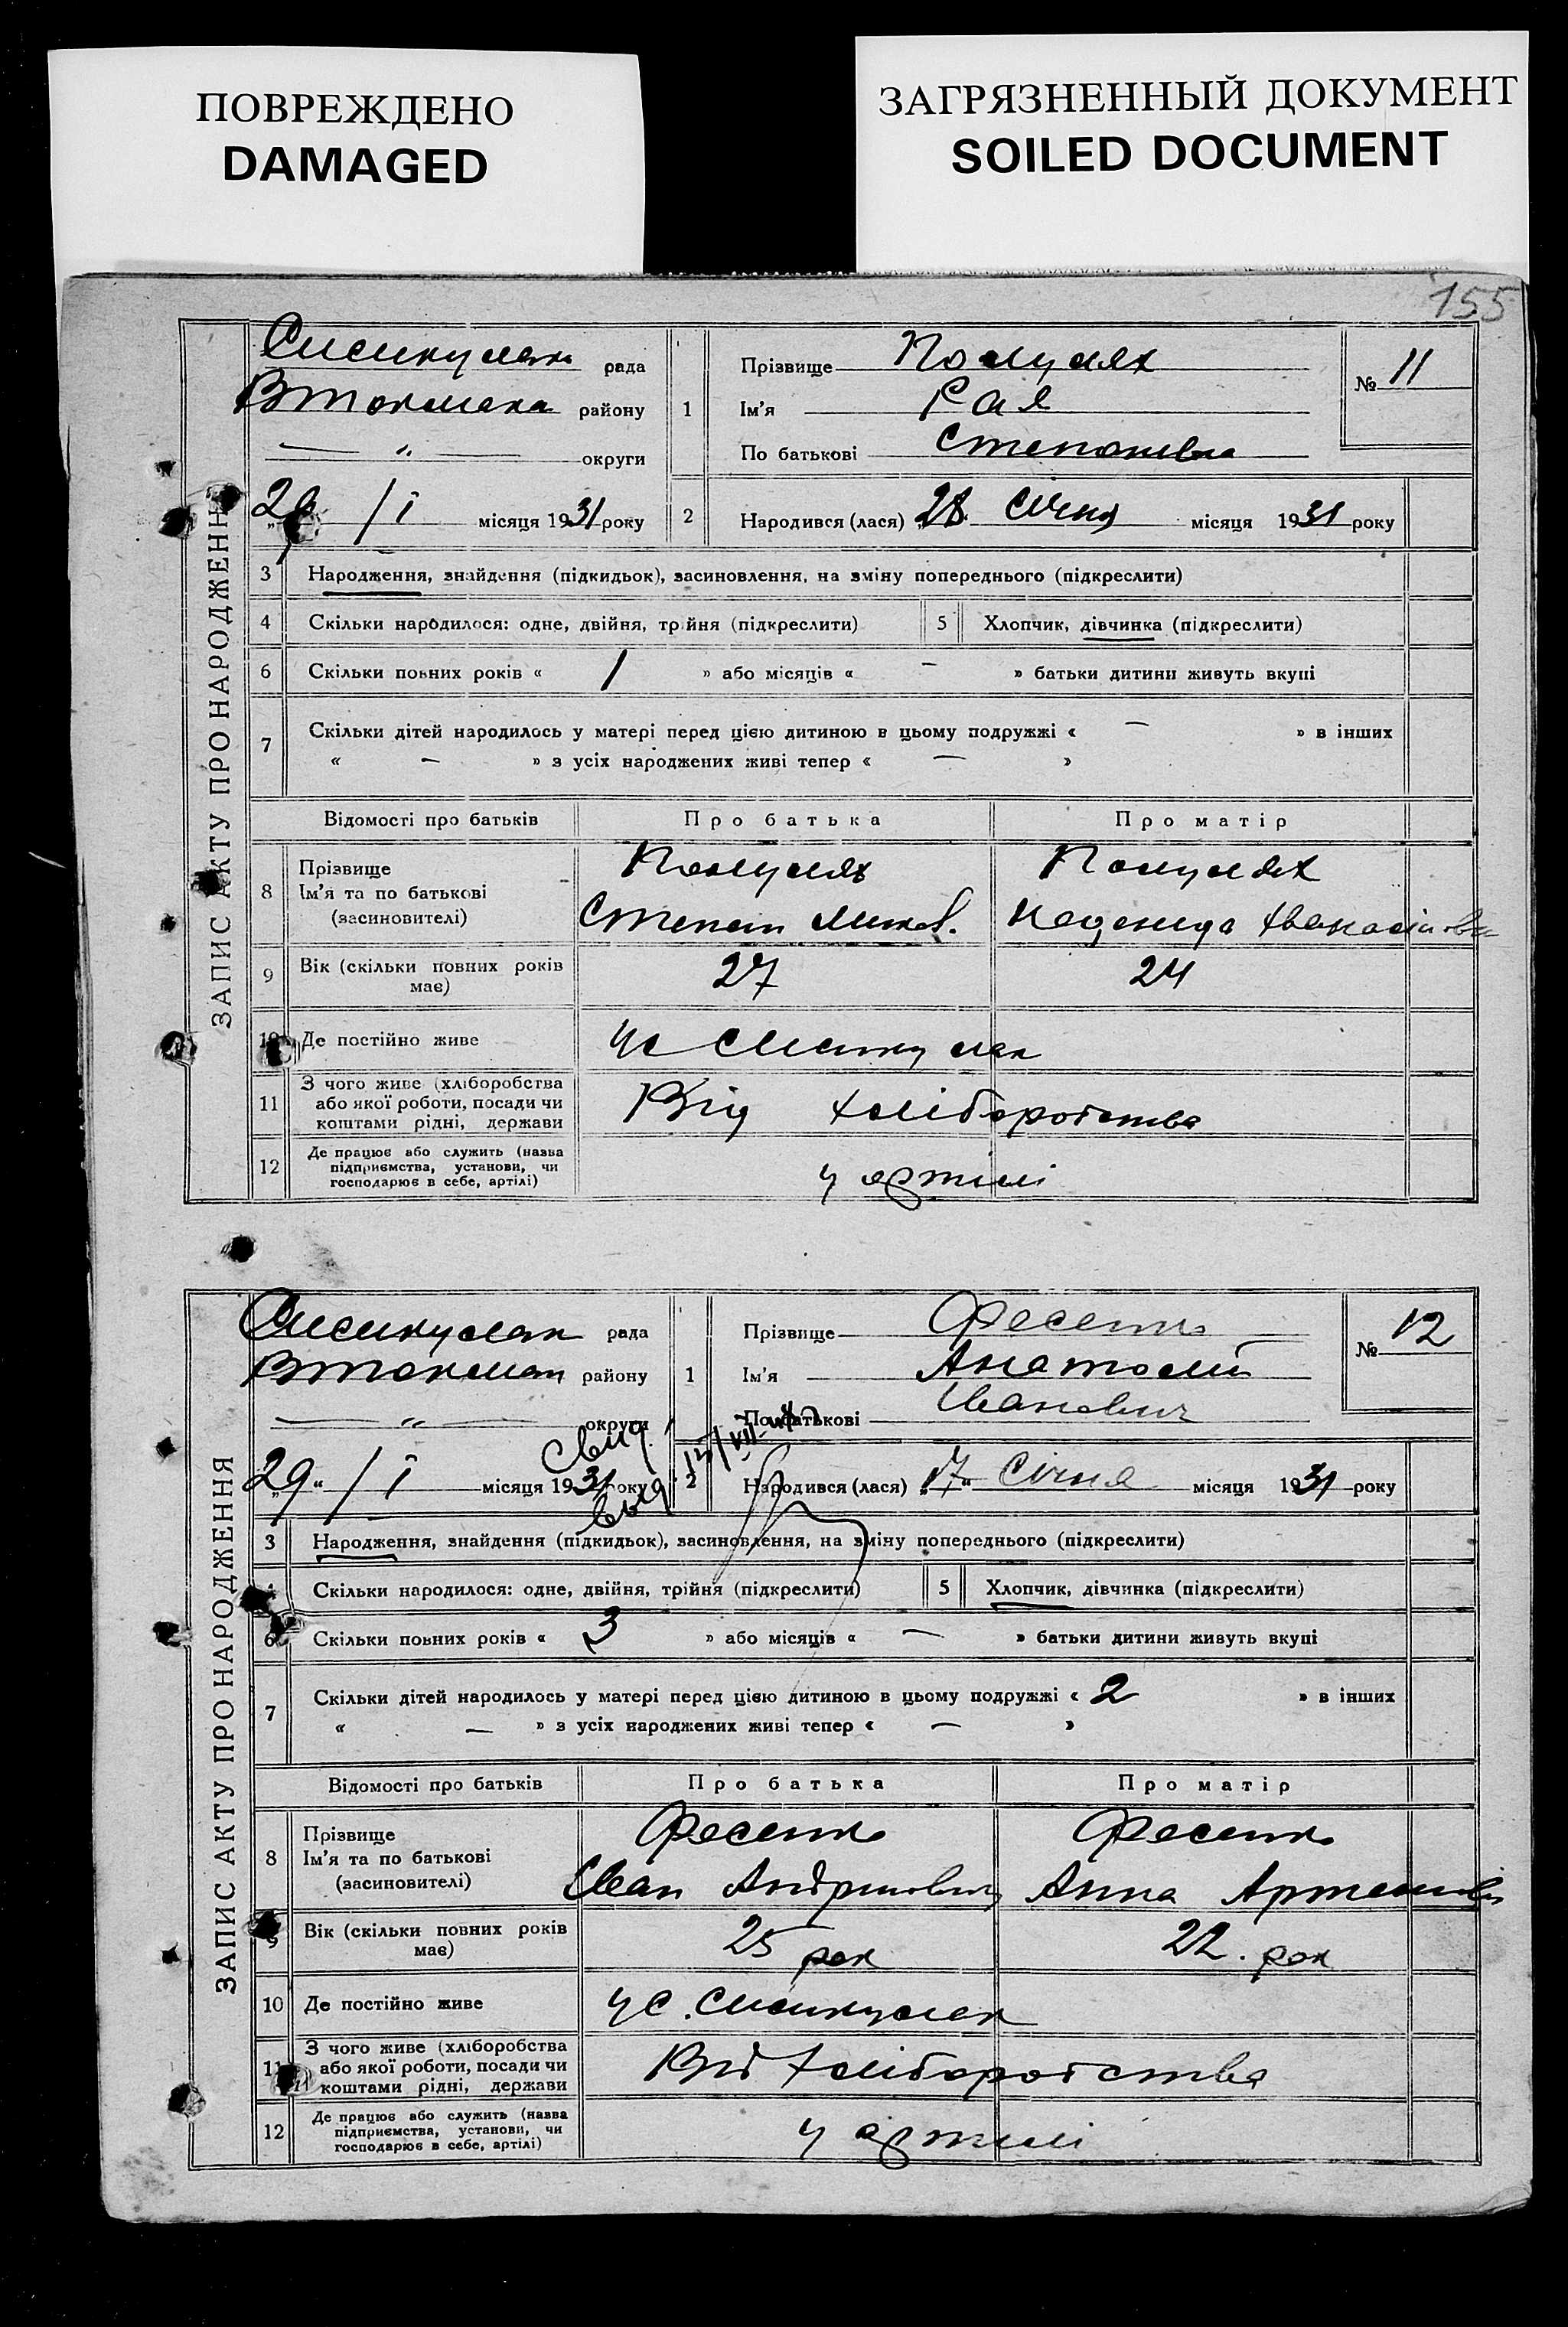 ПОВРЕЖДЕНО
DAMAGED
ЗАГРЯЗНЕННЫЙ ДОКУМЕНТ
SOILED DOCUMENT
155
ЗАПИС АКТУ ПРО НАРОДЖЕНН
рада
Втокмака району
— " — округи
/ І місяця 1931 року
1
Прізвище
Ім'я Рая
По батькові Степановна
№ 11
2 Народився (лася) „28 січня місяця 1931 року
3 Народження, знайдення (підкидьок), засиновлення, на зміну попереднього (підкреслити)
4 Скільки народилося: одне, двійня, трійня (підкреслити)
5 Хлопчик, дівчинка (підкреслити)
6 Скільки повних років « 1 » або місяців « — » батьки дитини живуть вкупі
7 Скільки дітей народилось у матері перед цією дитиною в цьому подружжі « — » в інших
« — » з усіх народжених живі тепер « — »
Відомості про батьків
Про батька
Про матір
8 Прізвище
Ім'я та по батькові
(засиновителі)
Степан
9 Вік (скільки повних років має)
27
24
10 Де постійно живе
ус
11 З чого живе (хліборобства
або якої роботи, посади чи
коштами рідні, держави
Від хліборобства
12 Де працює або служить (назва
підприємства, установи, чи
господарює в себе, артілі)
у артілі
ЗАПИС АКТУ ПРО НАРОДЖЕННЯ
рада
Втокмак району
— " — округи
„29" / І місяця 1931 року
1
Прізвище Фесенко
Ім'я Анатолій
По батькові Іванович
№ 12
2 Народився (лася) „17" Січня місяця 1931 року
3 Народження, знайдення (підкидьок), засиновлення, на зміну попереднього (підкреслити)
Скільки народилося: одне, двійня, трійня (підкреслити)
5 Хлопчик, дівчинка (підкреслити)
6 Скільки повних років « 3 » або місяців « — » батьки дитини живуть вкупі
7 Скільки дітей народилось у матері перед цією дитиною в цьому подружжі « 2 » в інших
« — » з усіх народжених живі тепер « — »
Відомості про батьків
Про батька
Про матір
8 Прізвище
Ім'я та по батькові
(засиновителі)
Фесенко
Іван
Фесенко
Анна
9 Вік (скільки повних років має)
25 рок
22. рок
10 Де постійно живе
ус.
11 З чого живе (хліборобства
або якої роботи, посади чи
коштами рідні, держави
Від хліборобства
12 Де працює або служить (назва
підприємства, установи, чи
господарює в себе, артілі)
у артілі